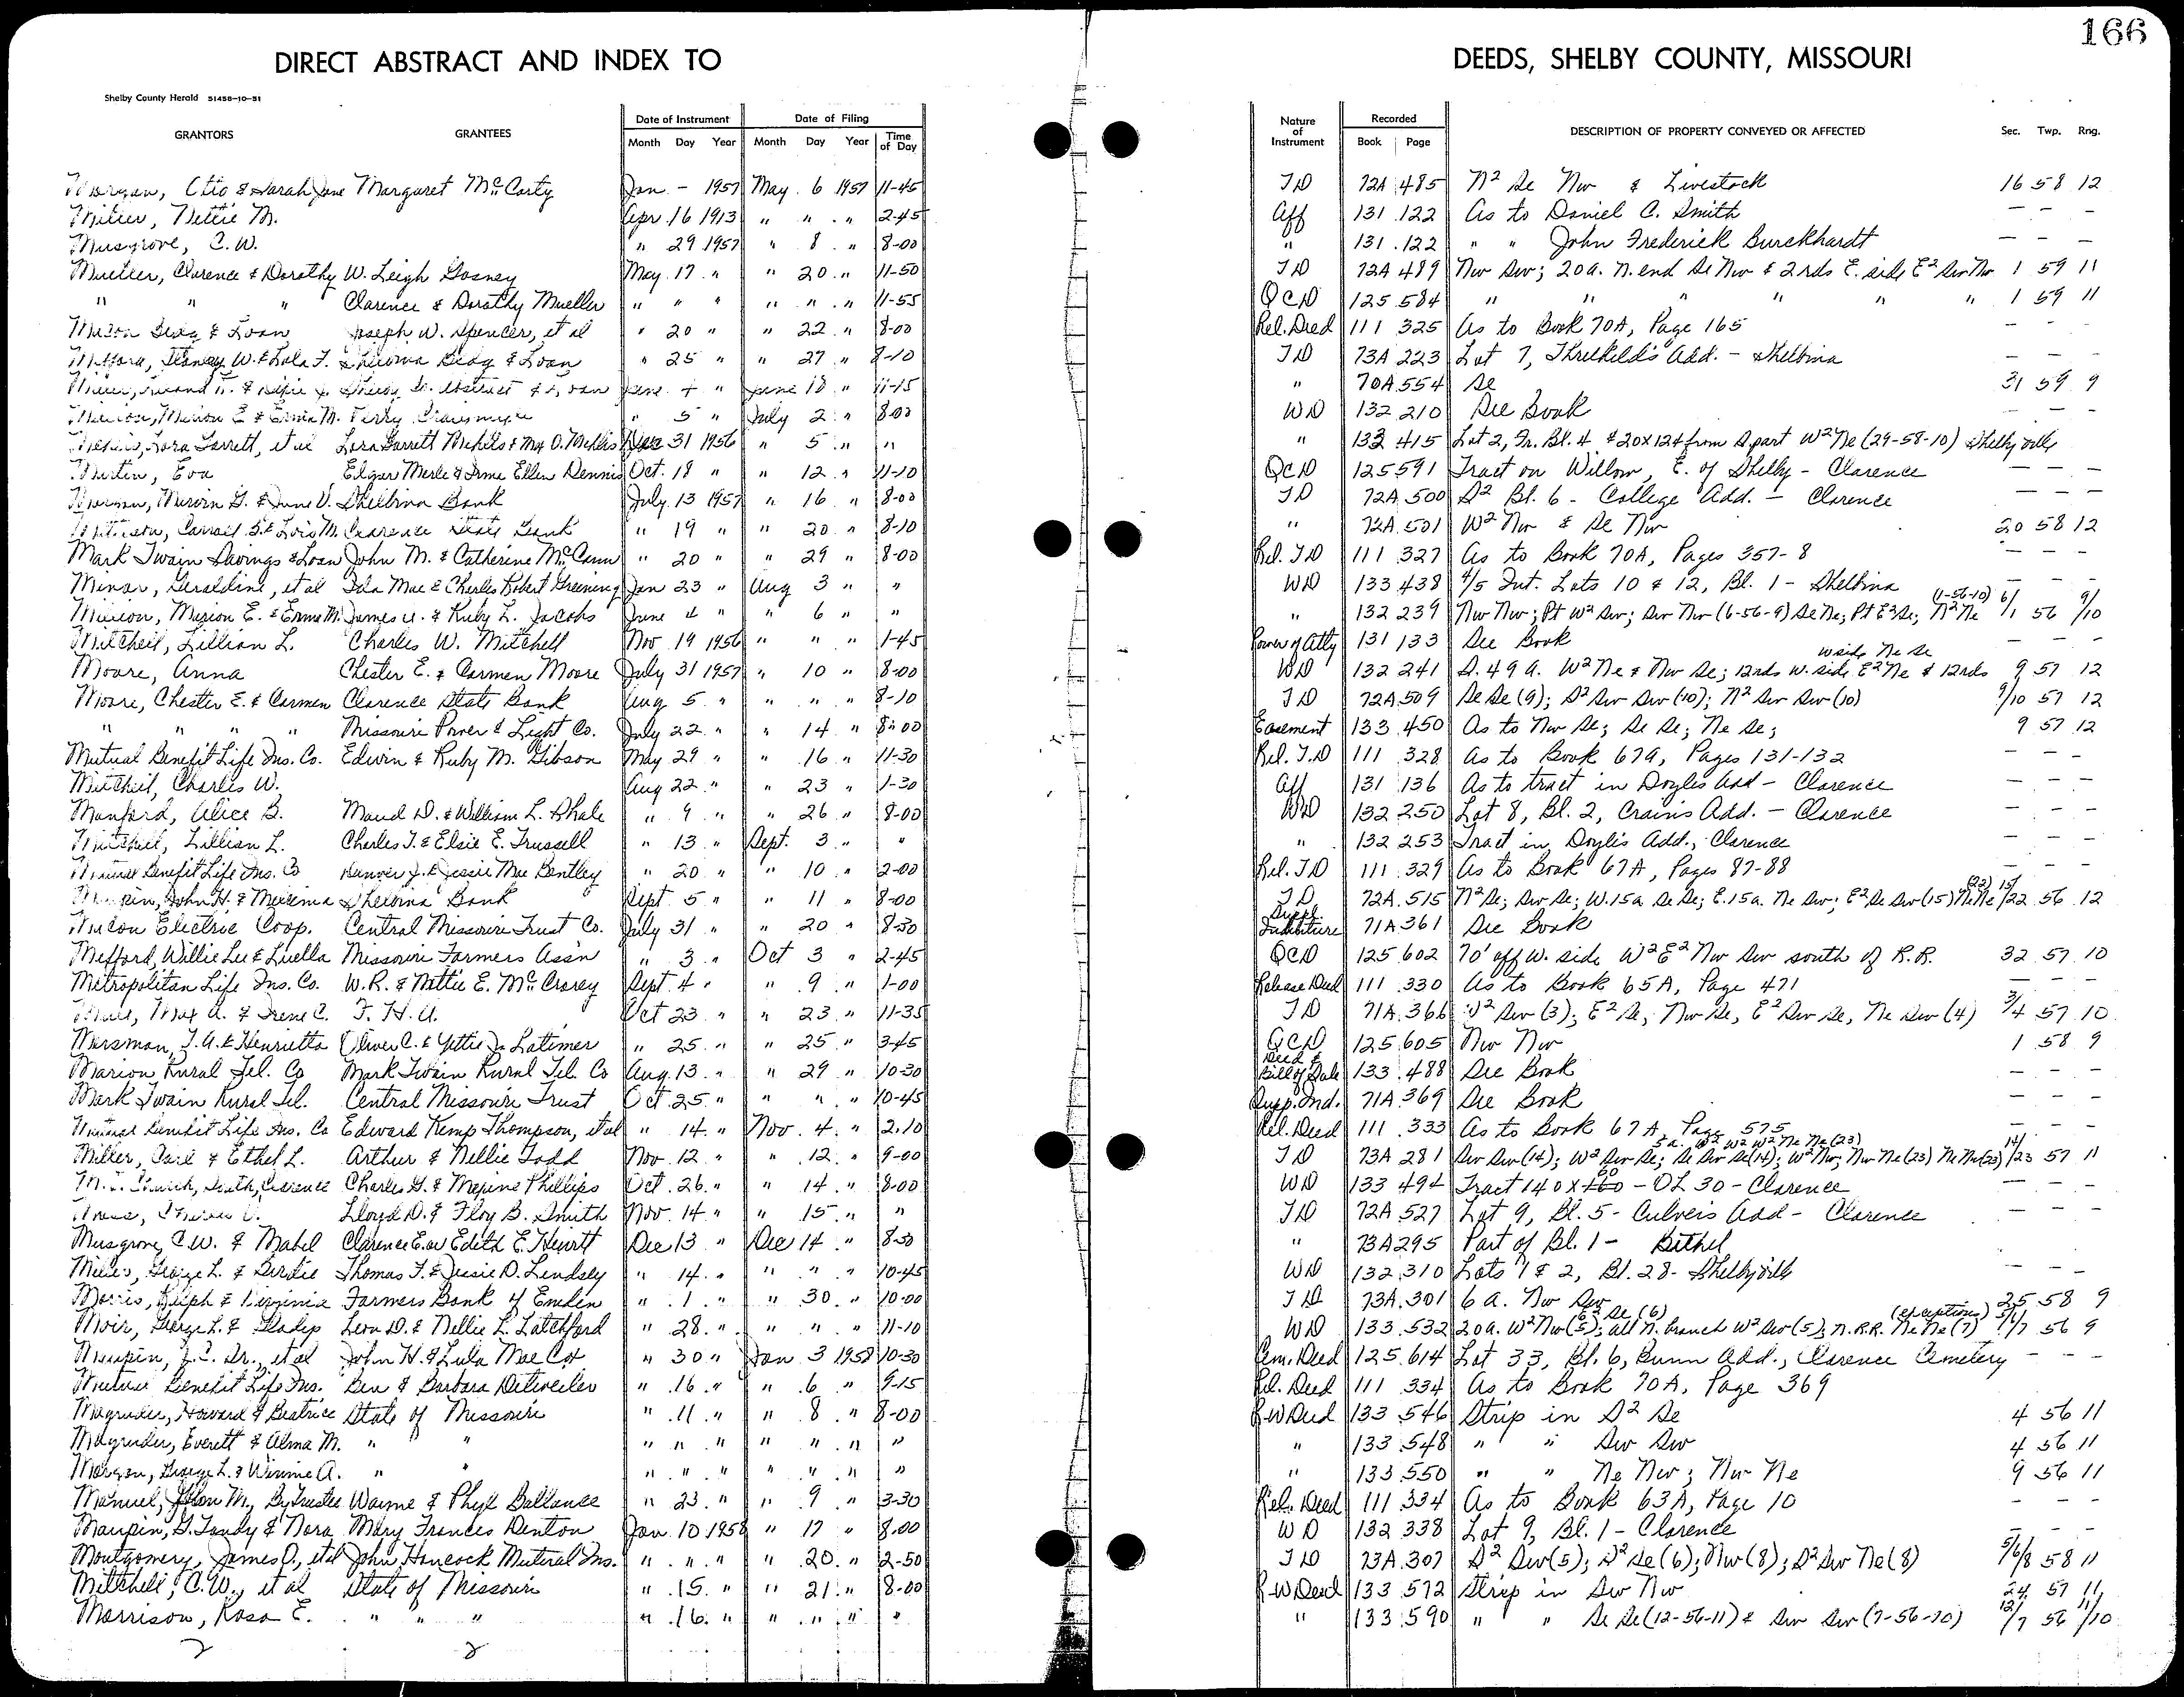 166
DIRECT ABSTRACT AND INDEX TO DEEDS, SHELBY COUNTY, MISSOURI
Shelby County Herald 51458-10-51
GRANTORS GRANTEES Date of Instrument Date of Filing Nature of Instrument Recorded DESCRIPTION OF PROPERTY CONVEYED OR AFFECTED Sec. Twp. Rng.
Month Day Year Month Day Year Time of Day Book Page
Morgan, Otto & Sarah Jane Margaret McCarty Jan. - 1957 May 6 1957 11-45 TD 72A 485 N2 Se Nw & Livestock 16 58 12
Miller, Nettie M. Apr. 16 1913 " " " 2-45 Aff 131 122 As to Daniel C. Smith - - -
Musgrove, C.W. " 29 1957 " 8 " 8-00 " 131 122 " " John Frederick Burckhardt - - -
Mueller, Clarence & Dorathy W. Leigh Gosney May 17 " " 20 " 11-50 TD 72A 489 Nw Sw; 20a. N. end Se Nw & 2 rds E. side E2 Sw Nw 1 59 11
" " " Clarence & Dorathy Mueller " " " " " " 11-55 QCD 125 584 " " " " " " 1 59 11
Macon Bldg & Loan Joseph W. Spencer, et al " 20 " " 22 " 8-00 Rel. Deed 111 325 As to Book 70A, Page 165 - - -
Mefford, W. & Lola F. Shelbina Bldg & Loan " 25 " " 27 " 8-10 TD 73A 223 Lot 7, Threlkeld's Add. - Shelbina - - -
Abstract & Loan June 4 " June 18 " 11-15 " 70A 554 Se 31 59 9
Marion E. & Erma M. " 5 " July 2 " 8-00 WD 132 210 See Book - - -
Lora Garrett, et al Lora Garrett Mehlis & Max O. Mehlis Dec 31 1956 " 5 " " " 133 415 Lot 2, Fr. Bl. 4 & 20x124 from S. part W2 Ne (29-58-10) Shelbyville
Martin, Eva Edgar Merle & Irma Ellen Dennis Oct. 18 " " 12 " 11-10 QCD 125 591 Tract on Willow, E. of Shelby - Clarence - - -
Marvin G. & June V. Shelbina Bank July 13 1957 " 16 " 8-00 TD 72A 500 S2 Bl. 6 - College Add. - Clarence - - -
& Lois M. Clarence State Bank " 19 " " 20 " 8-10 " 72A 501 W2 Nw & Se Nw 20 58 12
Mark Twain Savings & Loan John M. & Catherine McCann " 20 " " 29 " 8-00 Rel. TD 111 327 As to Book 70A, Pages 357-8 - - -
Minor, Geraldine, et al Iola Mae & Charles Robert Greening Jan 23 " Aug 3 " " WD 133 438 4/5 Int. Lots 10 & 12, Bl. 1 - Shelbina - - -
Marion E. & Erma M. James A. & Ruby L. Jacobs June 4 " " 6 " " " 132 239 Nw Nw; Pt W2 Sw; Sw Nw (6-56-9) Se Ne; Pt E2 Se; N2 Ne (1-56-10) 6/1 56 9/10
Mitchell, Lillian L. Charles W. Mitchell Nov 19 1956 " " " 1-45 Power of Atty 131 133 See Book - - -
Moore, Anna Chester E. & Carmen Moore July 31 1957 " 10 " 8-00 WD 132 241 S. 49 a. W2 Ne & Nw Se; 12 rds w. side E2 Ne & 12 rds w side Ne Se 9 57 12
Moore, Chester E. & Carmen Clarence State Bank Aug 5 " " " " 8-10 TD 72A 509 Se Se (9); S2 Sw Sw (10); N2 Sw Sw (10) 9/10 57 12
" " " Missouri Power & Light Co. July 22 " " 14 " 8-00 Easement 133 450 As to Nw Se; Se Se; Ne Se; 9 57 12
Mutual Benefit Life Ins. Co. Edwin & Ruby M. Gibson May 29 " " 16 " 11-30 Rel. T.D 111 328 As to Book 67A, Pages 131-132 - - -
Mitchell, Charles W. Aug 22 " " 23 " 1-30 Aff 131 136 As to tract in Doyles Add - Clarence - - -
Manford, Alice B. Maud D. & William L. Shale " 9 " " 26 " 8-00 WD 132 250 Lot 8, Bl. 2, Crains Add. - Clarence - - -
Mitchell, Lillian L. Charles T. & Elsie E. Trussell " 13 " Sept. 3 " " " 132 253 Tract in Doyles Add., Clarence - - -
Mutual Benefit Life Ins. Co Denver J. & Jessie Mae Bentley " 20 " " 10 " 2-00 Rel. TD 111 329 As to Book 67A, Pages 87-88 - - -
Maupin, John H. & Shelbina Bank Sept 5 " " 11 " 8-00 TD 72A 515 N2 Se; Sw Se; W. 15a Se Se; E. 15a. Ne Sw; E2 Se Sw (15) Ne Ne (22) 15/22 56 12
Macon Electric Coop. Central Missouri Trust Co. July 31 " " 20 " 8-30 Suppl. Indenture 71A 361 See Book
Mefford, Willie Lee & Luella Missouri Farmers Ass'n " 3 " Oct 3 " 2-45 QCD 125 602 70' off W. side W2 E2 Nw Sw south of R.R. 32 57 10
Metropolitan Life Ins. Co. W.R. & Nettie E. McCrarey Sept. 4 " " 9 " 1-00 Release Deed 111 330 As to Book 65A, Page 471 - - -
Max A. & Irene C. F.H.A. Oct 23 " " 23 " 11-35 TD 71A 366 W2 Sw (3); E2 Se, Nw Se, E2 Sw Se, Ne Sw (4) 3/4 57 10
Mersman, J.A. & Henrietta Oliver C. & Yettie Jo Latimer " 25 " " 25 " 3-45 QCD 125 605 Nw Nw 1 58 9
Marion Rural Tel. Co Mark Twain Rural Tel. Co Aug. 13 " " 29 " 10-30 Deed & Bill of Sale 133 488 See Book - - -
Mark Twain Rural Tel. Central Missouri Trust Oct. 25 " " " " 10-45 Supp. Ind. 71A 369 See Book - - -
Mutual Benefit Life Ins. Co Edward Kemp Thompson, et al " 14 " Nov. 4 " 2.10 Rel. Deed 111 333 As to Book 67A, Page 575 - - -
Miller, Carl & Ethel L. Arthur & Nellie Todd Nov. 12 " " 12 " 9-00 TD 73A 281 Sw Sw (14); W2 Sw Se; Se Sw Se (14); W2 Nw; Nw Ne (23) Ne Nw (23) 5a. W2 W2 W2 Ne Ne (23) 14/23 57 11
M.E. Church, South, Clarence Charles G. & Maxine Phillips Oct. 26 " " 14 " 8-00 WD 133 494 Tract 140 x 60 - OL 30 - Clarence - - -
Lloyd D. & Floy B. Smith Nov. 14 " " 15 " " TD 72A 527 Lot 9, Bl. 5 - Culvers Add - Clarence - - -
Musgrove, C.W. & Mabel Clarence E. or Edith E. Hewitt Dec 13 " Dec 14 " 8-30 " 73A 295 Part of Bl. 1 - Bethel
George L. & Birdie Thomas F. & Jessie D. Lindsey " 14 " " " " 10-45 WD 132 310 Lots 1 & 2, Bl. 28 - Shelbyville - - -
Morris, Ralph & Virginia Farmers Bank of Emden " 1 " " 30 " 10-00 TD 73A 301 6 a. Nw Sw 25 58 9
Moir, George L. & Gladys Leon D. & Nellie L. Latchford " 28 " " " " 11-10 WD 133 532 20a. W2 Nw (5); all N. branch W2 Sw (5); N.R.R. Ne Ne (7) E2 Se (6) (exceptions) 5/6/7 56 9
Maupin, J.C. Sr., et al John H. & Lula Mae Cox " 30 " Jan 3 1958 10-30 Cem. Deed 125 614 Lot 33, Bl. 6, Bunn Add., Clarence Cemetery - - -
Mutual Benefit Life Ins. Ben & Barbara Detweiler " 16 " " 6 " 9-15 Rel. Deed 111 334 As to Book 70A, Page 369
Magruder, Howard & Beatrice State of Missouri " 11 " " 8 " 8-00 R-W Deed 133 546 Strip in S2 Se 4 56 11
Magruder, Everett & Alma M. " " " " " " " " " " 133 548 " " Sw Sw 4 56 11
Morgan, George L. & Winnie A. " " " " " " " " " " 133 550 " " Ne Nw; Nw Ne 9 56 11
Manuel, John M., By Trustee Wayne & Phyl Ballance " 23 " " 9 " 3-30 Rel. Deed 111 334 As to Book 63A, Page 10 - - -
Maupin, G. Tandy & Nora Mary Frances Denton Jan. 10 1958 " 17 " 8.00 WD 132 338 Lot 9, Bl. 1 - Clarence - - -
Montgomery, James O., et al John Hancock Mutual Ins. " " " " 20 " 2-50 TD 73A 307 S2 Sw (5); S2 Se (6); Nw (8); S2 Sw Ne (8) 5/6/8 58 11
Mitchell, C.W., et al State of Missouri " 15 " " 21 " 8-00 R-W Deed 133 572 Strip in Sw Nw 24 57 11
Morrison, Rosa E. " " " " 16 " " " " " " 133 590 " " Se Se (12-56-11) & Sw Sw (7-56-10) 12/7 56 11/10
2 2